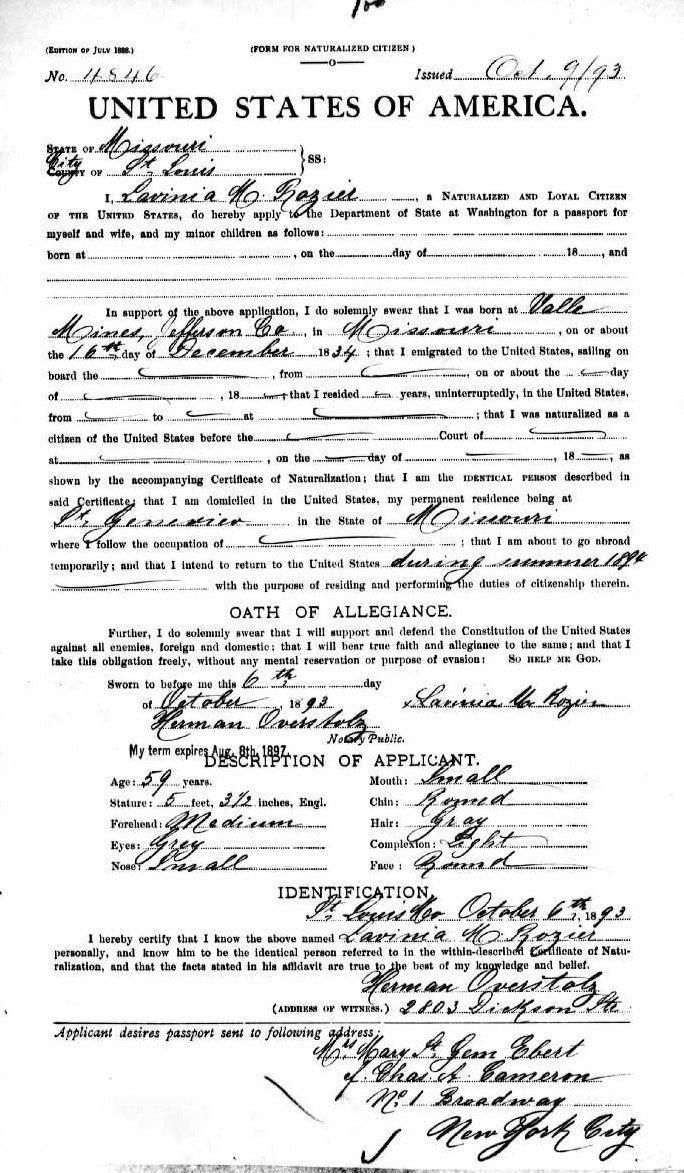 100
(EDITION OF JULY 1888.) (FORM FOR NATURALIZED CITIZEN)
No. 4846 Issued Oct. 9/93
UNITED STATES OF AMERICA.
STATE OF Missouri
City
COUNTY OF St. Louis } SS:
I, Lavinia M Rozier, a NATURALIZED AND LOYAL CITIZEN
OF THE UNITED STATES, do hereby apply to the Department of State at Washington for a passport for
myself and wife, and my minor children as follows:
born at , on the day of 18 , and
In support of the above application, I do solemnly swear that I was born at Valle
Mines, Jefferson Co, in Missouri , on or about
the 16th day of December 1834; that I emigrated to the United States, sailing on
board the , from , on or about the day
of , 18 ; that I resided years, uninterruptedly, in the United States,
from to at ; that I was naturalized as a
citizen of the United States before the Court of
at , on the day of , 18 , as
shown by the accompanying Certificate of Naturalization; that I am the IDENTICAL PERSON described in
said Certificate; that I am domiciled in the United States, my permanent residence being at
St. Genevieve in the State of Missouri
where I follow the occupation of ; that I am about to go abroad
temporarily; and that I intend to return to the United States during summer 1894
with the purpose of residing and performing the duties of citizenship therein.
OATH OF ALLEGIANCE.
Further, I do solemnly swear that I will support and defend the Constitution of the United States
against all enemies, foreign and domestic; that I will bear true faith and allegiance to the same; and that I
take this obligation freely, without any mental reservation or purpose of evasion: SO HELP ME GOD.
Sworn to before me this 6th day
of October , 1893 x Lavinia M Rozier
Herman Overstolz
Notary Public.
My term expires Aug. 8th, 1897.
DESCRIPTION OF APPLICANT.
Age: 59 years. Mouth: Small
Stature: 5 feet, 3 1/2 inches, Engl. Chin: Round
Forehead: Medium Hair: Gray
Eyes: Grey Complexion: Light
Nose: Small Face: Round
IDENTIFICATION.
St. Louis Mo October 6th, 1893
I hereby certify that I know the above named Lavinia M Rozier
personally, and know him to be the identical person referred to in the within-described Certificate of Natu-
ralization, and that the facts stated in his affidavit are true to the best of my knowledge and belief.
Herman Overstolz
(ADDRESS OF WITNESS.) 2803 Dickson Str
Applicant desires passport sent to following address:
Mrs Mary St. Gem Ebert
of Chas. A. Cameron
No. 1 Broadway
New York City